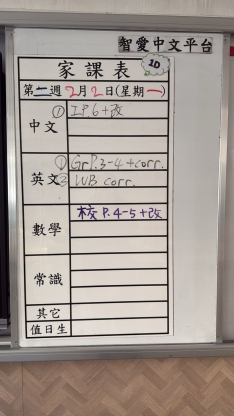 智愛中文平台
家課表
1D
第二週2月2日(星期一)
中文
① I P.6+改
英文
① Gr P.3-4+corr.
② WB corr.
數學
校 P.4-5+改
常識
其它
值日生